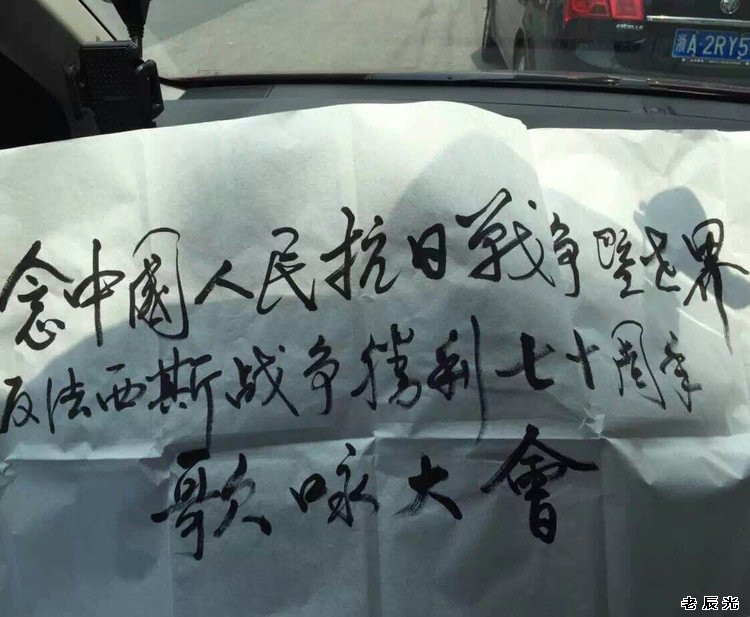 浙A·2RY5
念中國人民抗日戰争暨世界
反法西斯战争勝利七十周年
歌咏大會
老辰光